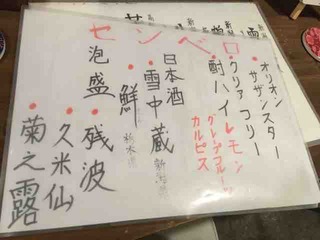 センベロ
・オリオン
サザンスター
・クリア フリー
・酎ハイ レモン
グレープフルーツ
カルピス
日本酒
・雪中蔵 新潟県
・鮮 栃木県
泡盛・残波
・久米仙
・菊之露